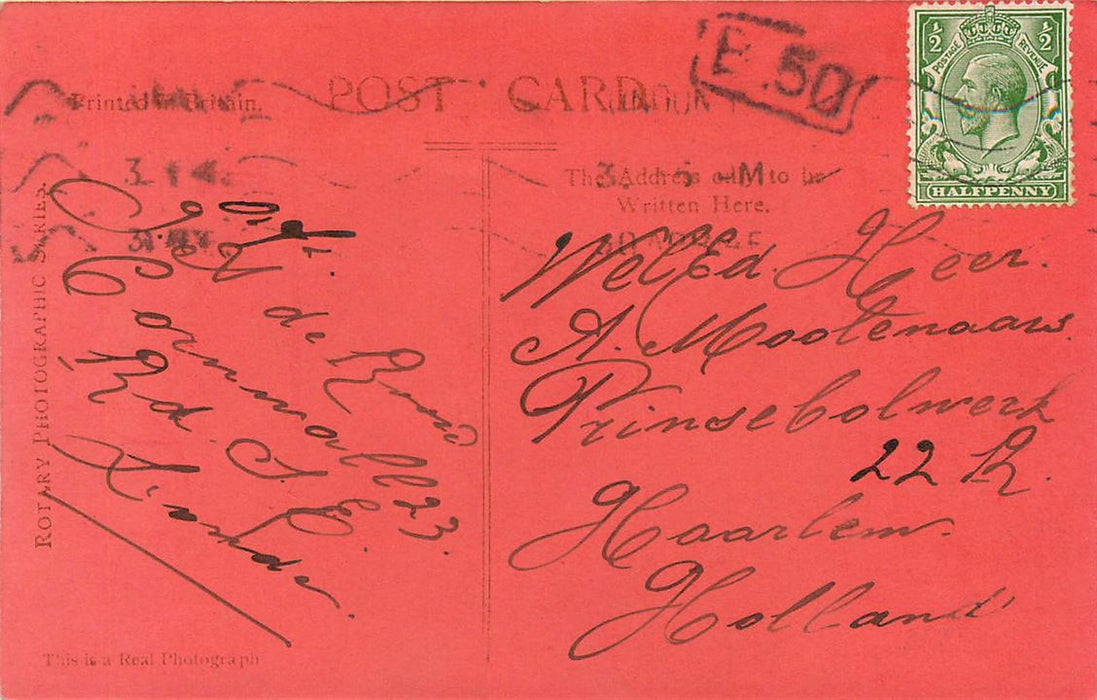 Printed in Britain.
POST CARD
E.50
½ ½
POSTAGE REVENUE
HALFPENNY
The Address only to be
Written Here.
ROTARY PHOTOGRAPHIC SERIES
de
Cornwall 23.
Rd. S.E.
London.
WelEd. Heer.
A. Mootenaars.
Prinsebolwerk
22 R.
Haarlem.
Holland
This is a Real Photograph